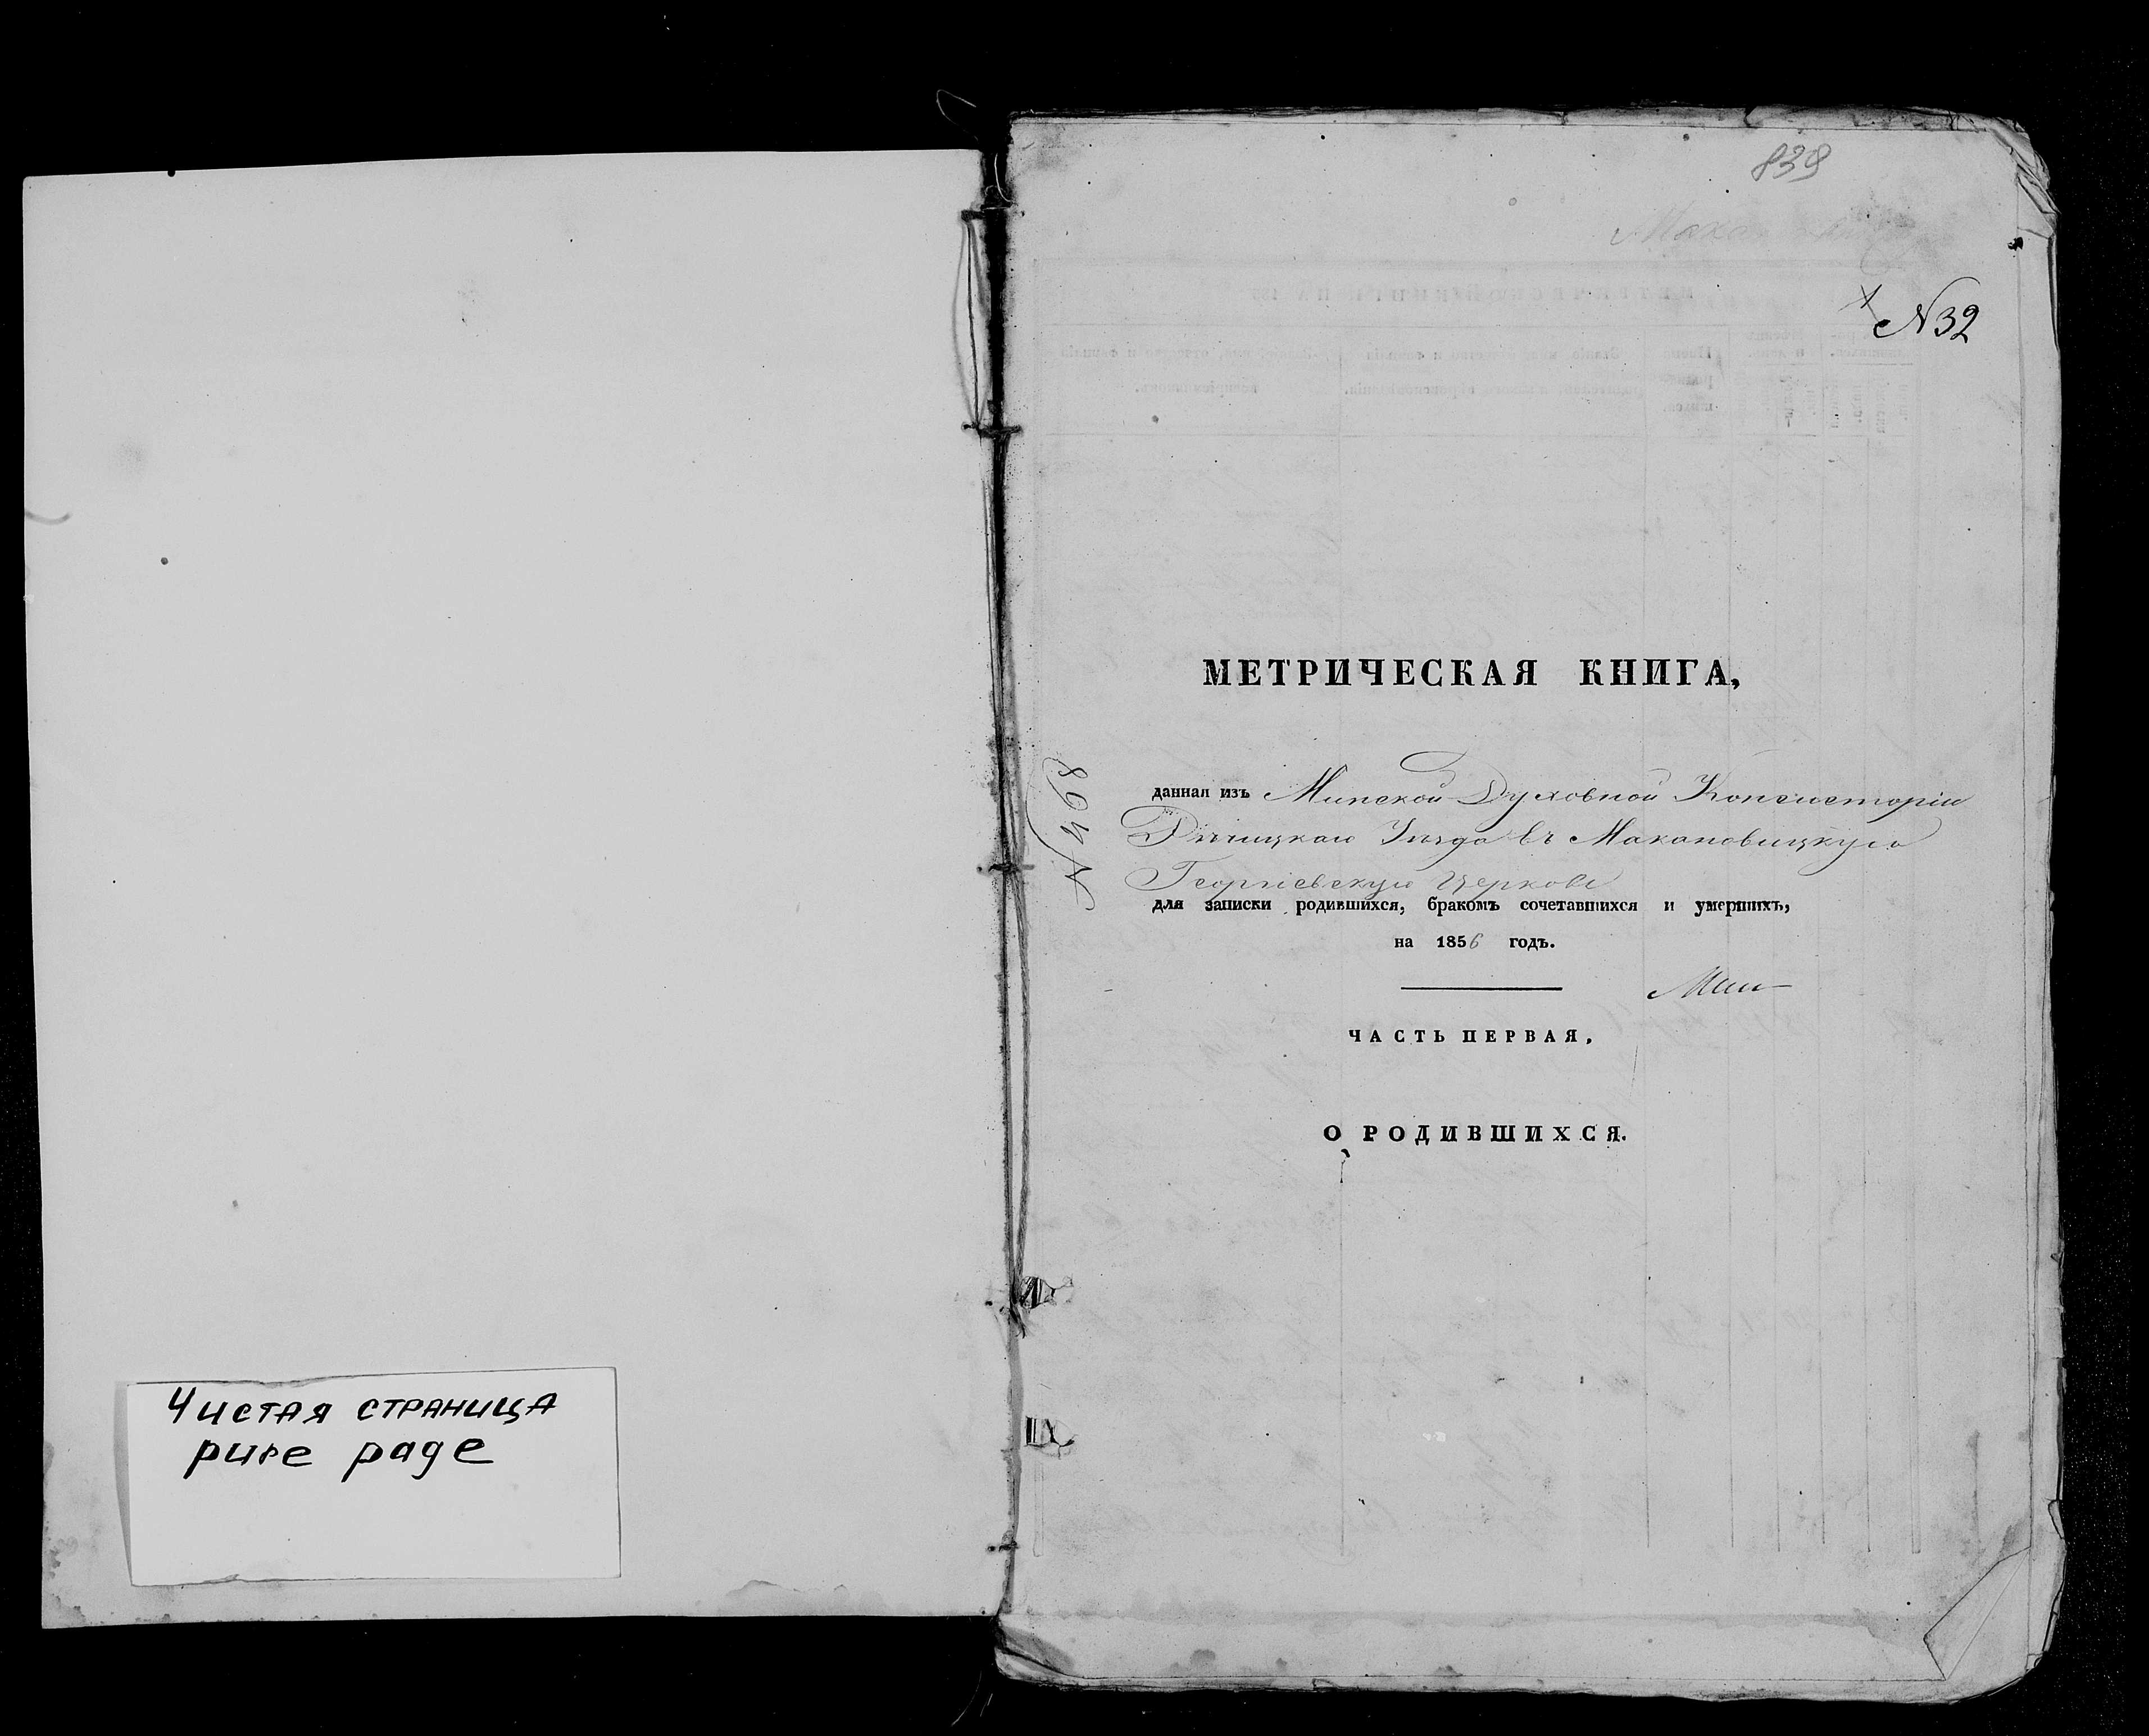 Чистая страница
pure page
839
N 32
МЕТРИЧЕСКАЯ КНИГА,
данная изъ Минской Духовной Консисторіи
Рѣчицкаго Уѣзда въ Макановицкую
Георгіевскую Церковь
для записки родившихся, бракомъ сочетавшихся и умершихъ,
на 1856 годъ.
ЧАСТЬ ПЕРВАЯ,
О РОДИВШИХСЯ.